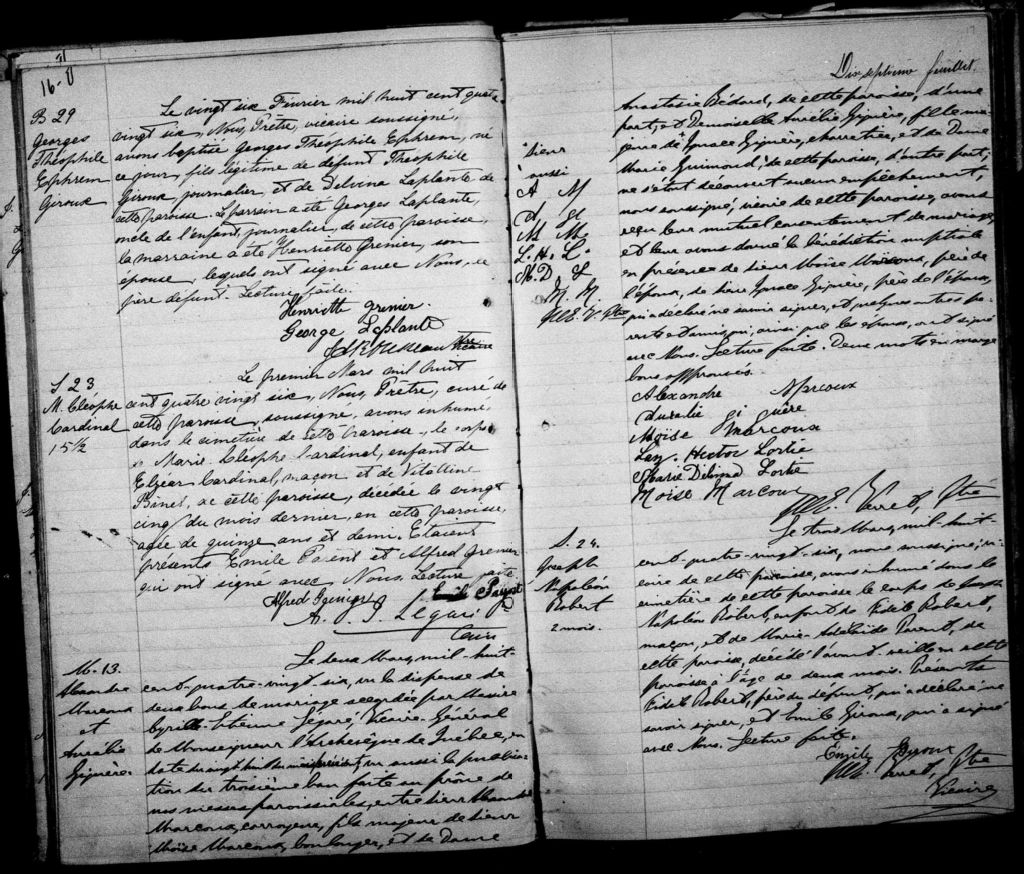 16-
B 29
Georges
Théophile
Ephrem
Giroux
Le vingt six Février mil huit cent quatre
vingt six, Nous, Prêtre, vicaire soussigné,
avons baptisé Georges Théophile Ephrem, né
ce jour, fils légitime de défunt Théophile
Giroux, journalier, et de Delvina Laplante de
cette paroisse. Le parrain a été Georges Laplante,
oncle de l'enfant, journalier, de cette paroisse,
la marraine a été Henriette Grenier, son
épouse, lesquels ont signé avec Nous, le
père défunt. Lecture faite.
Henriette Grenier
George Laplante
Ptre
Vicaire
S 23
M. Cléophé
Cardinal
15 1/2
Le premier Mars mil huit
cent quatre vingt six, Nous, Prêtre, curé de
cette paroisse, soussigné, avons inhumé,
dans le cimetière de cette paroisse, le corps
de Marie Cléophé Cardinal, enfant de
Elzear Cardinal, maçon et de Vitaline
Binet, de cette paroisse, décédée le vingt
cinq du mois dernier, en cette paroisse,
agée de quinze ans et demi. Etaient
présents Emile Parent et Alfred Grenier
qui ont signé avec Nous. Lecture faite
Alfred Grenier Emile Parent
Légaré Ptre
Curé
M. 13.
Alexandre
Marcoux
et
Aurélie
Giguère.
Le deux Mars, mil-huit-
cent-quatre-vingt-six, vu la dispense de
deux bans de mariage accordée par Messire
Cyrille Etienne Légaré, Vicaire Général
de Monseigneur l'Archevêque de Québec, en
date du vingt huit du mois vu aussi la publica-
tion du troisième ban faite au prône de
nos messes paroissiales, entre Sieur Alexandre
Marcoux, corroyeur, fils majeur de Sieur
Moïse Marcoux, boulanger, et de Dame
17
Dix septième feuillet.
Anastasie Bédard, de cette paroisse, d'une
part; et Demoiselle Aurélie Giguère, fille ma-
jeure de Ignace Giguère, charretier, et de Dame
Marie Guimond, de cette paroisse, d'autre part;
ne s'étant découvert aucun empêchement,
nous soussigné, vicaire de cette paroisse, avons
reçu leur mutuel consentement de mariage,
et leur avons donné la bénédiction nuptiale
en présence de Sieur Moïse Marcoux, père de
l'époux, de Sieur Ignace Giguère, père de l'épouse,
qui a déclaré ne savoir signer, et quelques autres pa-
rents et amis qui, ainsi que les époux, ont signé
avec Nous. Lecture faite. Deux mots en marge
bons approuvés.
Sieur
aussi
A M
A. G.
M M.
L. H. L.
M. D. L
M. M.
Ptre
Alexandre Marcoux
Aurélie Giguère
Moïse Marcoux
Lay. Hector Lortie
Marie Delima Lortie
Moïse Marcoux
Verret, Ptre
S. 24.
Joseph
Napoléon
Robert
2 mois.
Le trois Mars, mil-huit-
cent-quatre-vingt-six, nous soussigné, vi-
caire de cette paroisse, avons inhumé dans le
cimetière de cette paroisse le corps de Joseph
Napoléon Robert, enfant de Fidèle Robert,
maçon, et de Marie-Adélaïde Parent, de
cette paroisse, décédé l'avant veille en cette
paroisse à l'âge de deux mois. Présents
Fidèle Robert, père du défunt, qui a déclaré ne
savoir signer, et Emile Giroux, qui a signé
avec Nous. Lecture faite.
Emile Giroux
Verret, Ptre
Vicaire